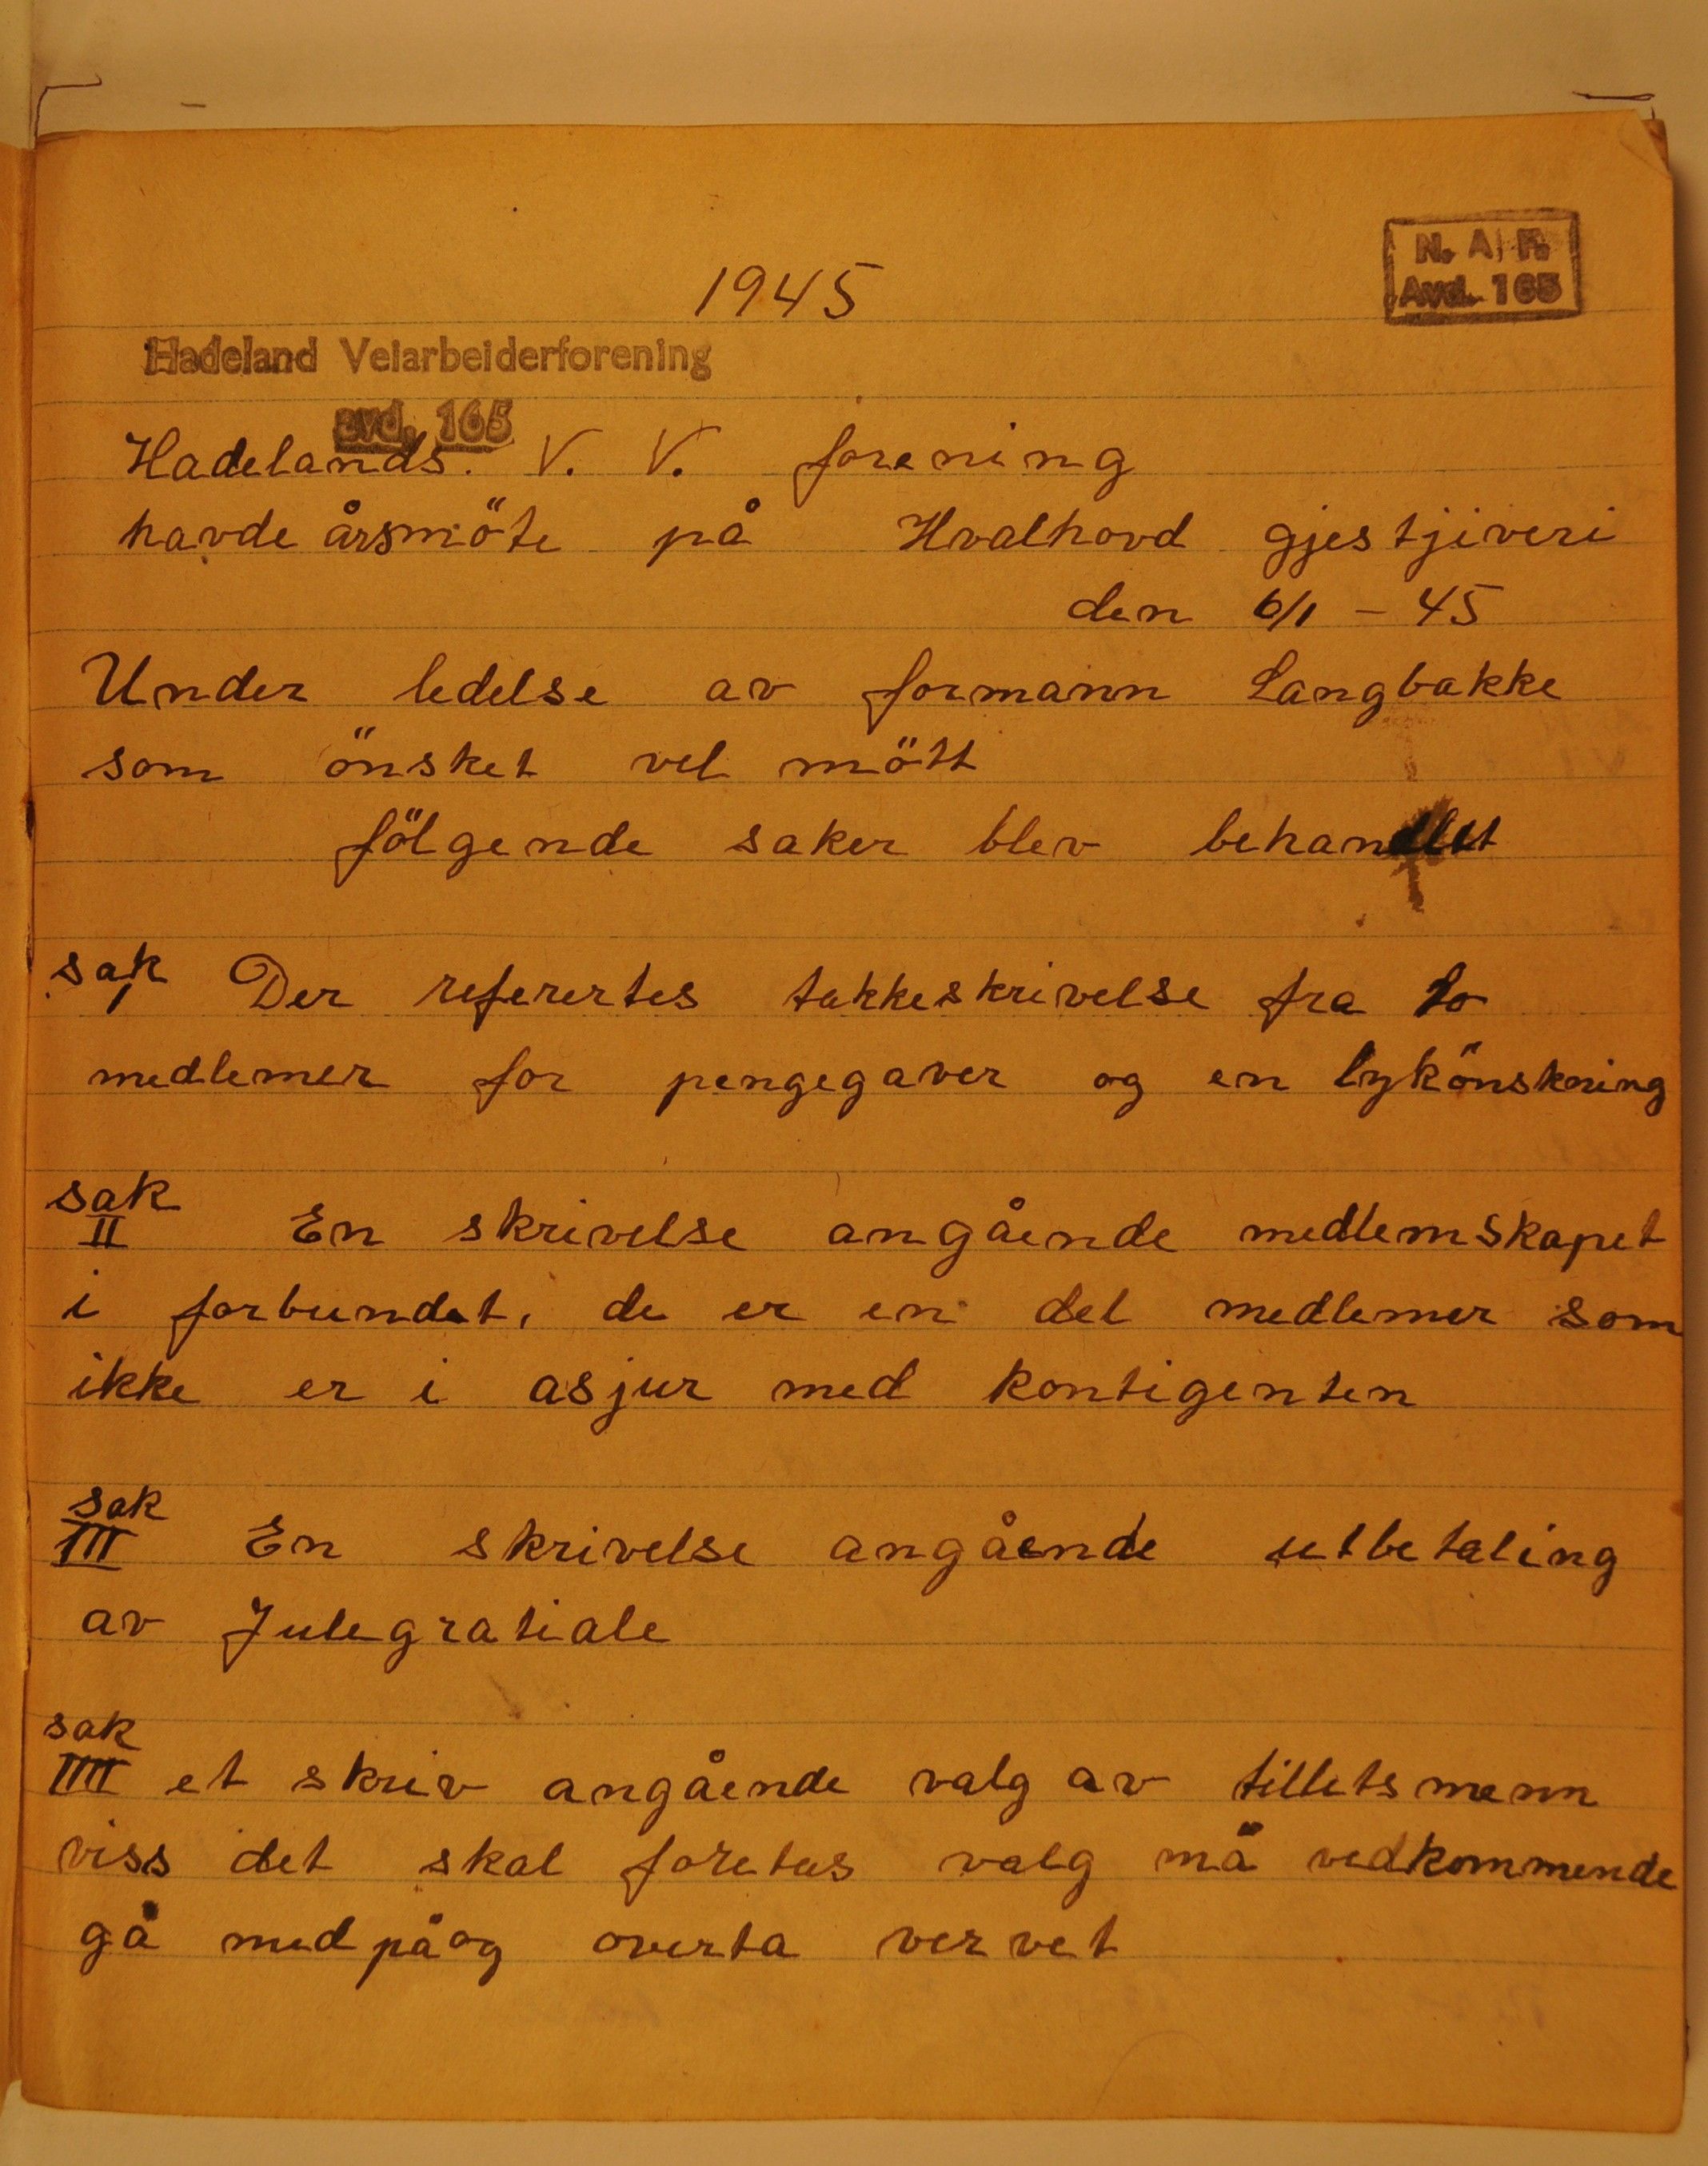 1945
N. A. F.
Avd. 165
Hadeland Veiarbeiderforening
avd. 165
Hadelands. V. V. forening
havde årsmöte på Hvalhovd gjestjiveri
den 6/1 - 45
Under ledelse av formann Langbakke
som önsket vel mött
fölgende saker blev behandlet
sak
I Der referertes takkeskrivelse fra to
medlemer for pengegaver og en lykönskning
sak
II En skrivelse angående medlemskapet
i forbundet, de er en del medlemer som
ikke er i asjur med kontigenten
sak
III En skrivelse angående utbetaling
av Julegratiale
sak
IIII et skriv angående valg av tilletsmenn
viss det skal foretas valg må vedkommende
gå med på og overta vervet